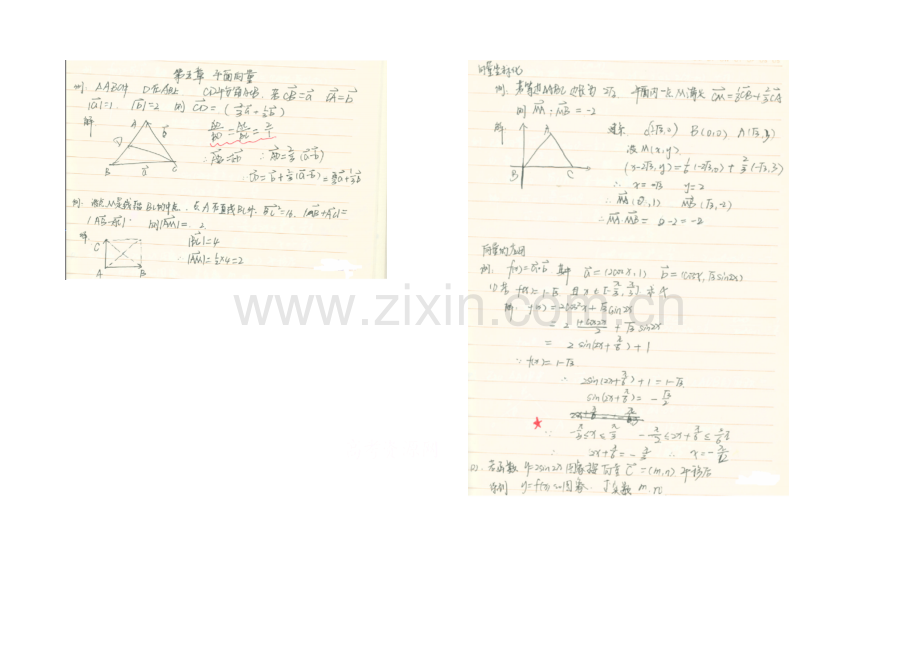 第五章 平面向量
例: △ABC中 D在AB上 CD平分角ACB. 若 CB=a CA=b
|a|=1. |b|=2 则 CD= ( 2/3 a + 1/3 b )
解
A
D
b
B
a
C
例: 点M是线段BC的中点. 点A在直线BC外. BC²=16. |AB+AC|=
|AB-AC| 则|AM|= 2
解
|BC|=4
∴|AM|=1/2×4=2
C
A
B
向量坐标化
例. 若等边△ABC 边长为 2√3. 平面内一点M满足 CM=1/6CB+2/3CA
则 MA·MB = -2
解
A
B
C
建系 C(2√3,0) B(0,0) A(√3,3)
设M(x,y)
(x-2√3,y)=1/6(-2√3,0)+2/3(-√3,3)
y=2
∴MA·MB= 0-2=-2
向量的应用
例. f(x)=a·b 其中 a=(2cosx,1) b=(cosx,√3sin2x)
(1) 若 f(x)=1-√3 且 x∈[-π/3,π/3] 求x
解: f(x)=2cos²x+√3sin2x
= 2 (1+cos2x)/2 + √3sin2x
= 2sin(2x+π/6)+1
∵ f(x)=1-√3
∴ 2sin(2x+π/6)+1=1-√3
sin(2x+π/6)=-√3/2
★ ∵ -π/3≤x≤π/3 -π/2≤2x+π/6≤5π/6
∴ 2x+π/6=-π/3 ∴ x=-π/4
(2). 若函数 y=2sin2x 图象按向量 C=(m,n) 平移后
得到 y=f(x)的图象. 求实数 m.n
www.zixin.com.cn